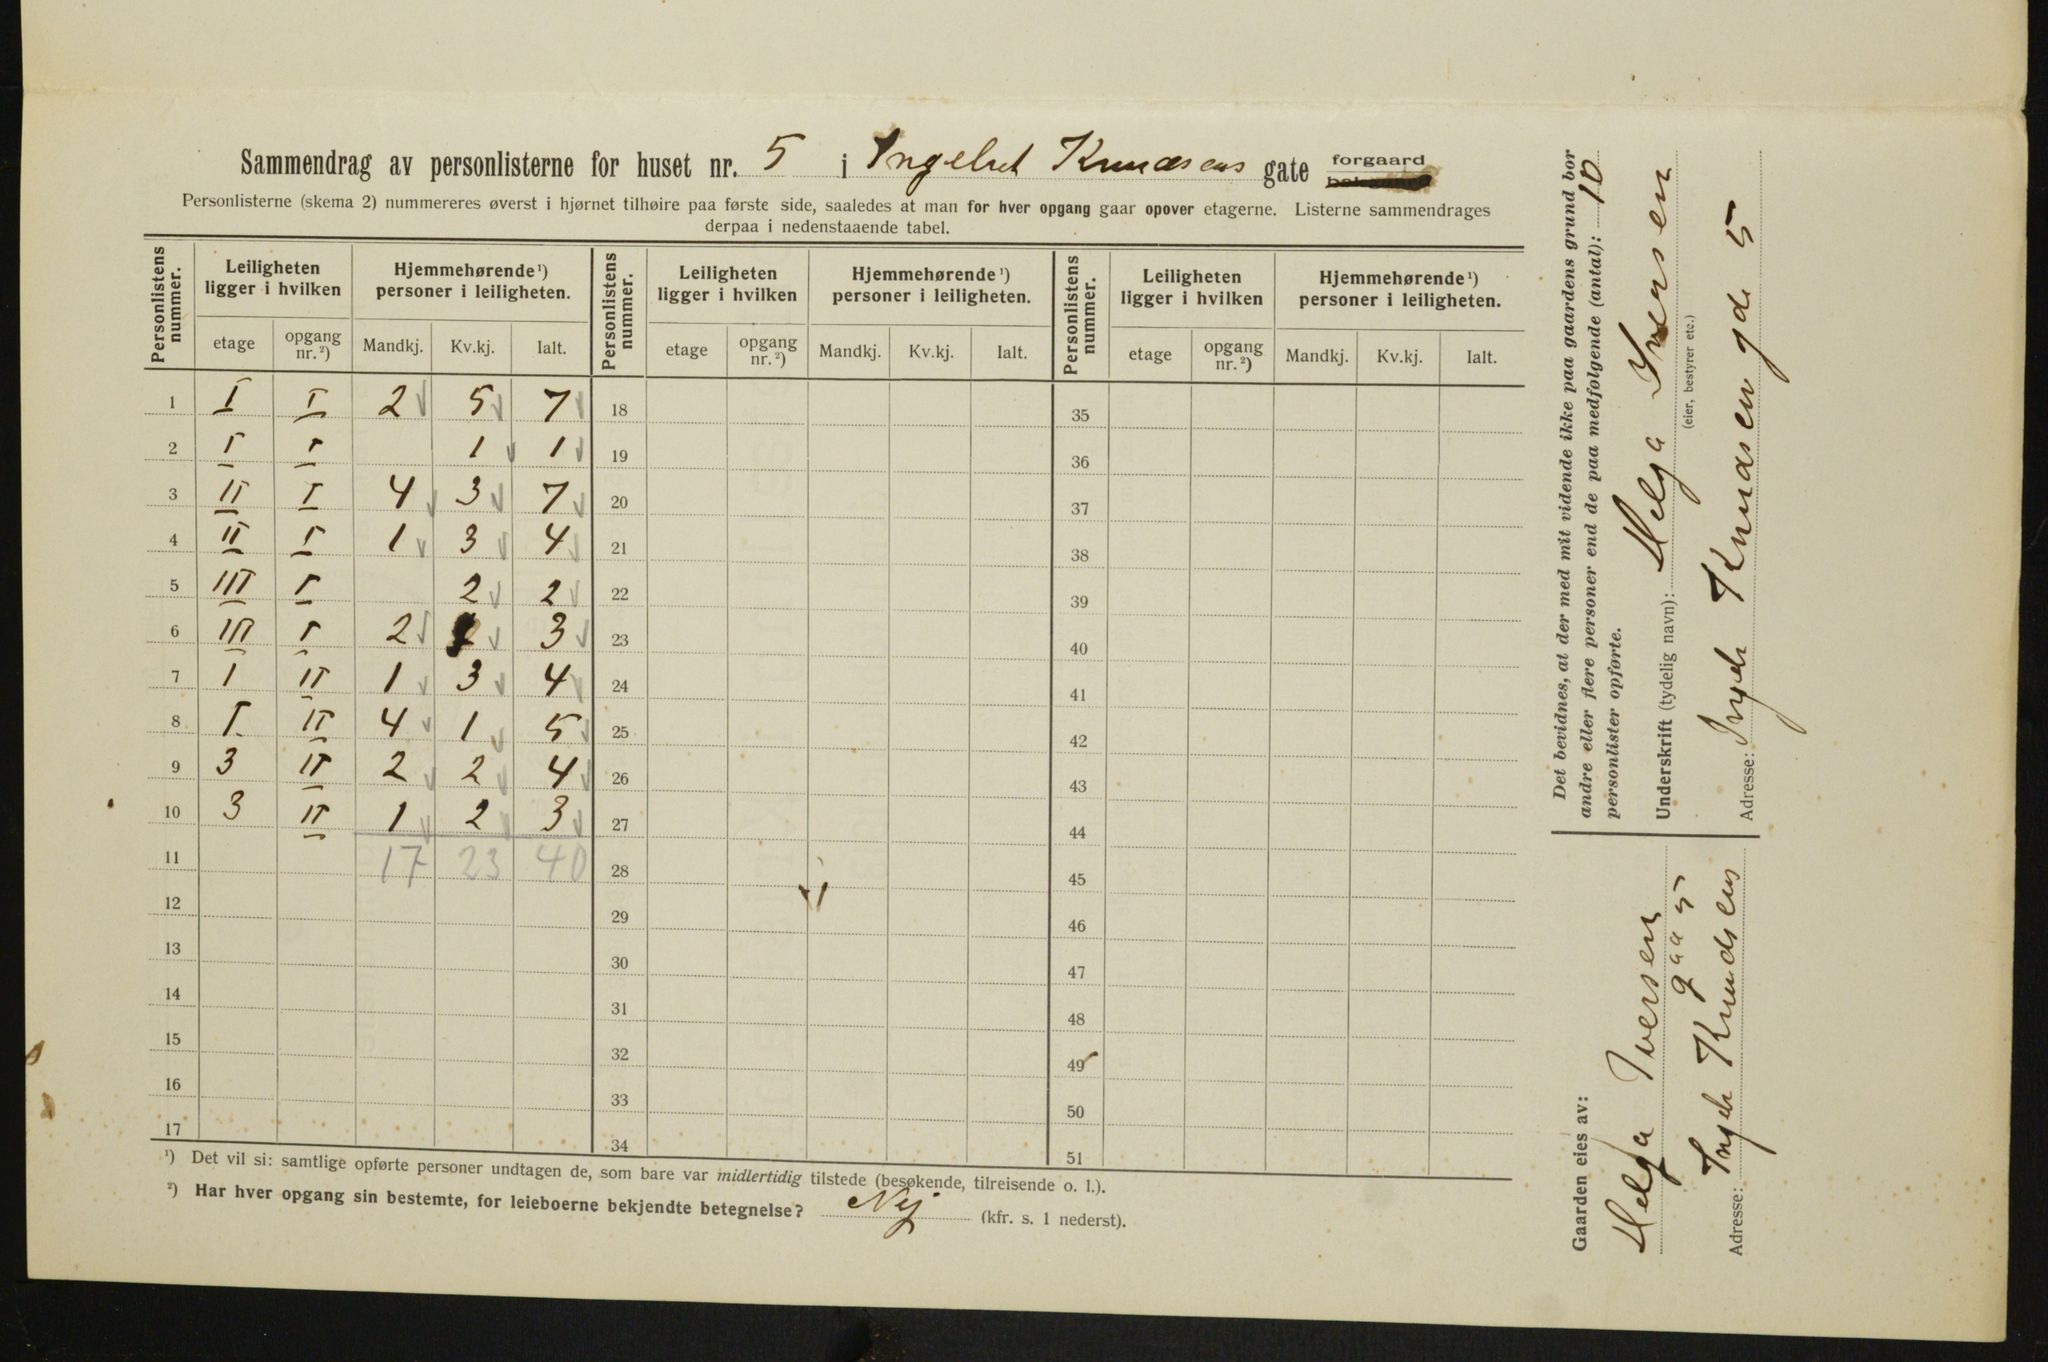 Sammendrag av personlisterne for huset nr. 5 i Ingelret Knudsens gate forgaard
Personlisterne (skema 2) nummereres øverst i hjørnet tilhøire paa første side, saaledes at man for hver opgang gaar opover etagerne. Listerne sammendrages
derpaa i nedenstaaende tabel.
Personlistens nummer. Leiligheten ligger i hvilken Hjemmehørende ¹) personer i leiligheten. Personlistens nummer. Leiligheten ligger i hvilken Hjemmehørende ¹) personer i leiligheten. Personlistens nummer. Leiligheten ligger i hvilken Hjemmehørende ¹) personer i leiligheten.
etage opgang nr. ²) Mandkj. Kv.kj. Ialt. etage opgang nr. ²) Mandkj. Kv.kj. Ialt. etage opgang nr. ²) Mandkj. Kv.kj. Ialt.
1 I I 2 5 7 18 35
2 I I 1 1 19 36
3 II I 4 3 7 20 37
4 II I 1 3 4 21 38
5 III I 2 2 22 39
6 III I 2 3 23 40
7 I II 1 3 4 24 41
8 I II 4 1 5 25 42
9 3 II 2 2 4 26 43
10 3 II 1 2 3 27 44
11 17 23 40 28 45
12 29 46
13 30 47
14 31 48
15 32 49
16 33 50
17 34 51
¹) Det vil si: samtlige opførte personer undtagen de, som bare var midlertidig tilstede (besøkende, tilreisende o. l.).
²) Har hver opgang sin bestemte, for leieboerne bekjendte betegnelse? Nej (kfr. s. 1 nederst).
Det bevidnes, at der med mit vidende ikke paa gaardens grund bor
andre eller flere personer end de paa medfølgende (antal): 10
personlister opførte.
Underskrift (tydelig navn): Helga Iversen
(eier, bestyrer etc.)
Adresse: Ingelr Knudsen gde 5
Gaarden eies av:
Helga Iversen
gaa 5
Adresse: Ingelr Knudsens